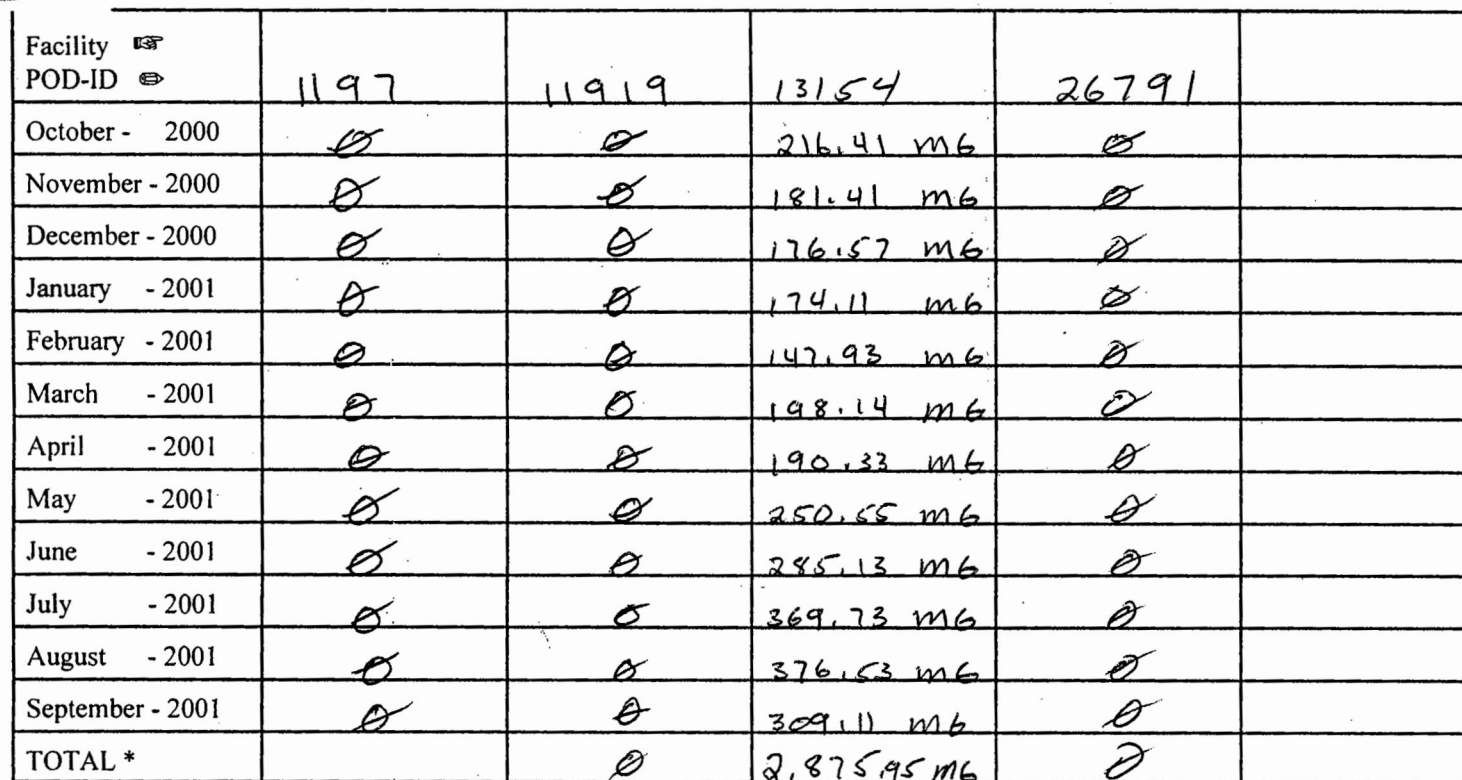 Facility ☞
POD-ID ✏ 1197 11919 13154 26791
October - 2000 Ø Ø 216.41 MG Ø
November - 2000 Ø Ø 181.41 MG Ø
December - 2000 Ø Ø 176.57 MG Ø
January - 2001 Ø Ø 174.11 MG Ø
February - 2001 Ø Ø 147.93 MG Ø
March - 2001 Ø Ø 198.14 MG Ø
April - 2001 Ø Ø 190.33 MG Ø
May - 2001 Ø Ø 250.55 MG Ø
June - 2001 Ø Ø 285.13 MG Ø
July - 2001 Ø Ø 369.73 MG Ø
August - 2001 Ø Ø 376.53 MG Ø
September - 2001 Ø Ø 309.11 MG Ø
TOTAL * Ø 2,875.95 MG Ø